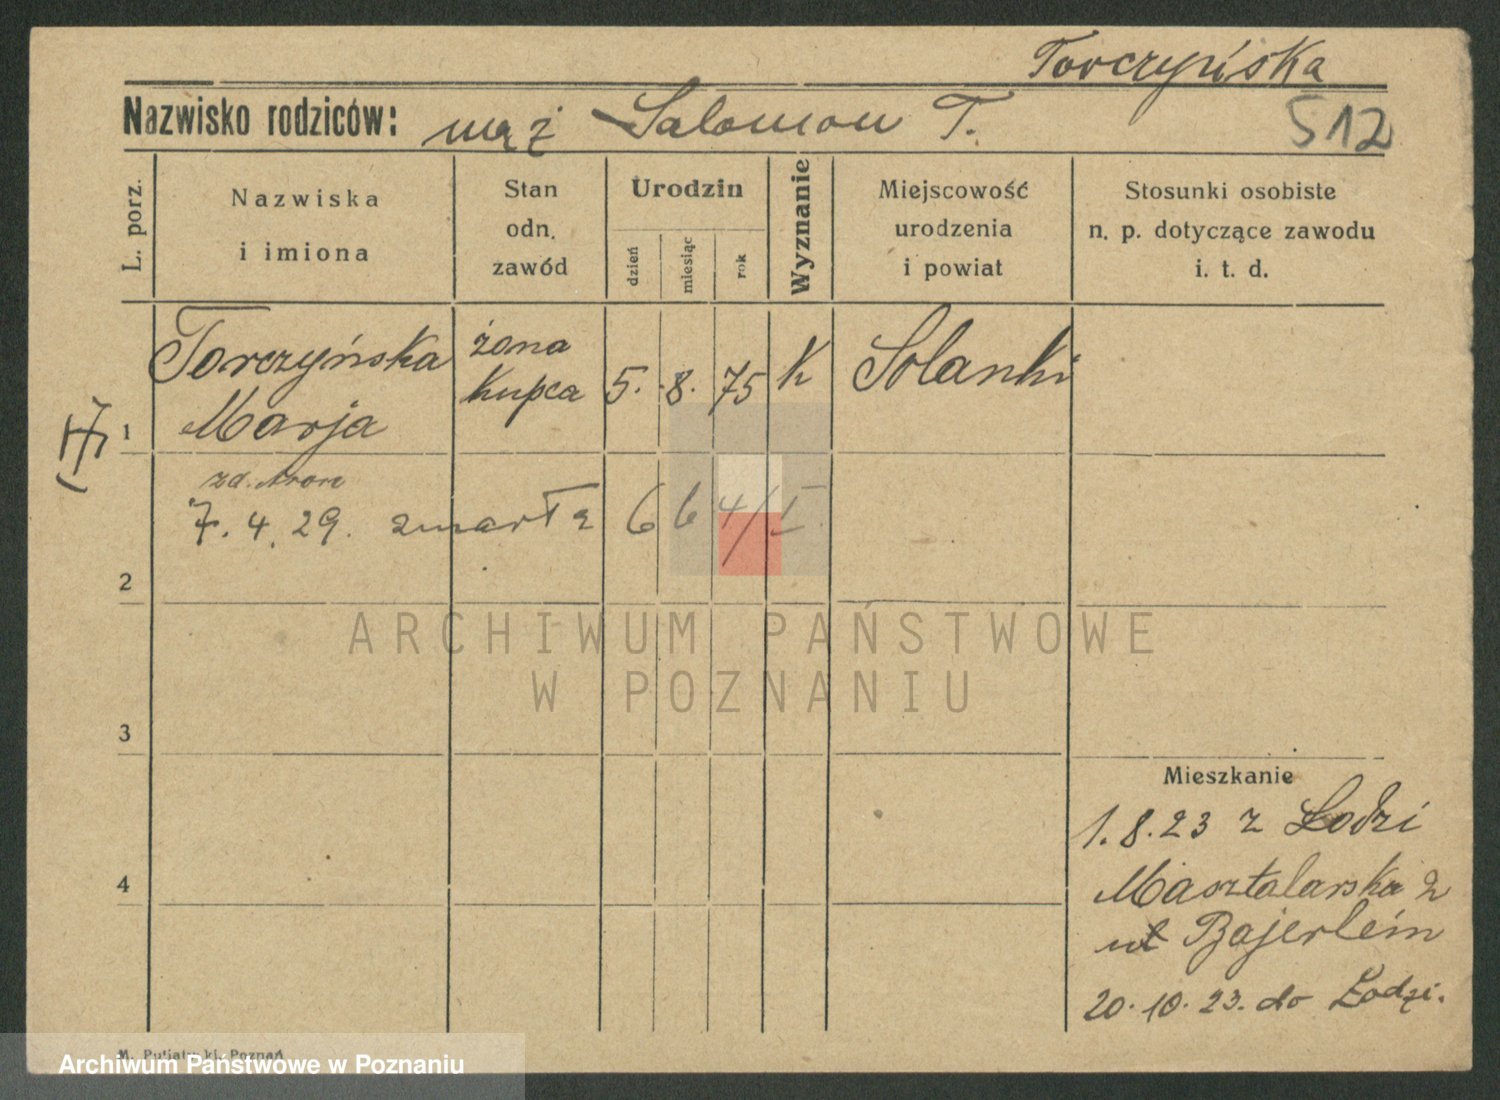 Torczyńska
Nazwisko rodziców: mąż Salomon T.
512
L. porz.
Nazwiska
i imiona
Stan
odn.
zawód
Urodzin
dzień
miesiąc
rok
Wyznanie
Miejscowość
urodzenia
i powiat
Stosunki osobiste
n. p. dotyczące zawodu
i. t. d.
Torczyńska
Marja
żona
kupca
5. 8. 75
K
Solanki
1
7. 4. 29. zmarła 664/I
2
ARCHIWUM PAŃSTWOWE
W POZNANIU
3
Mieszkanie
1. 8. 23 z Łodzi
4
Masztalarska 2
Bajerlein
20. 10. 23. do Łodzi.
M. Putiatycki, Poznań
Archiwum Państwowe w Poznaniu